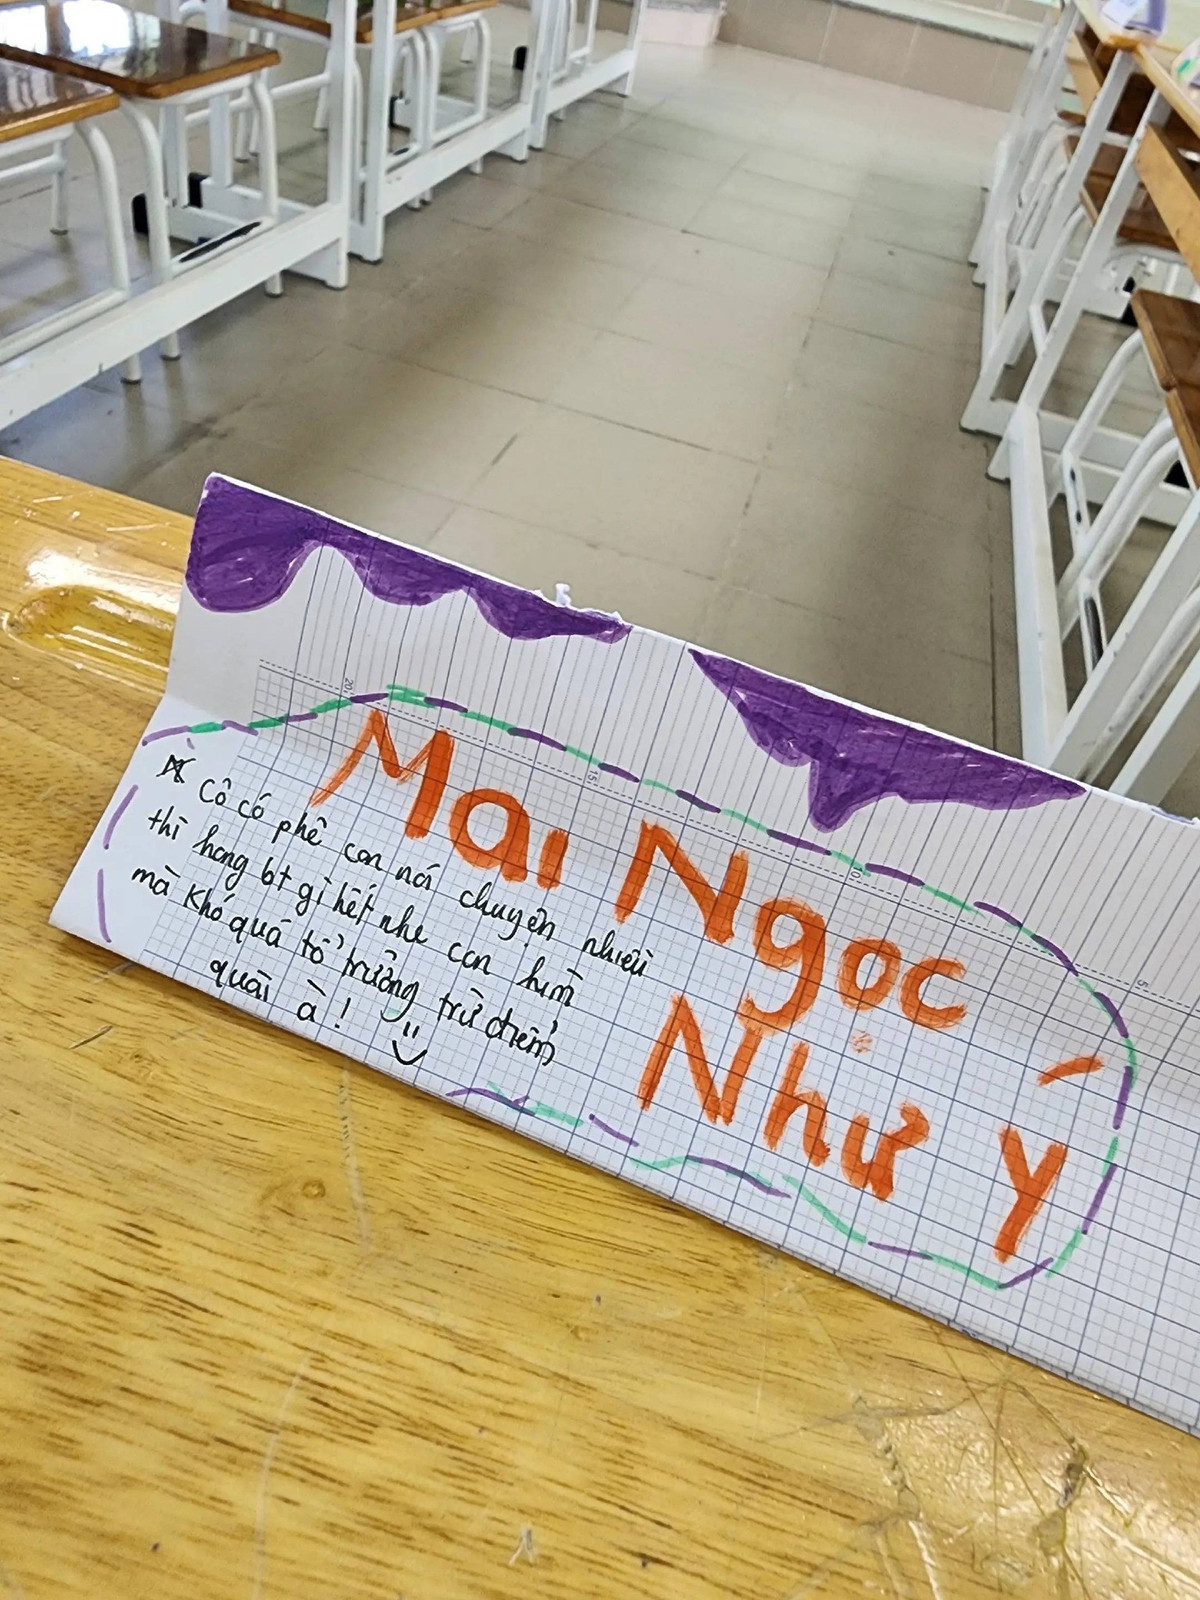 Mai Ngọc
Như Ý
Cô có phê con nói chuyện nhiều
thì hong bt gì hết nhe con hìn
mà khó quá tổ trưởng trừ điểm
quài à!
20
15
10
5